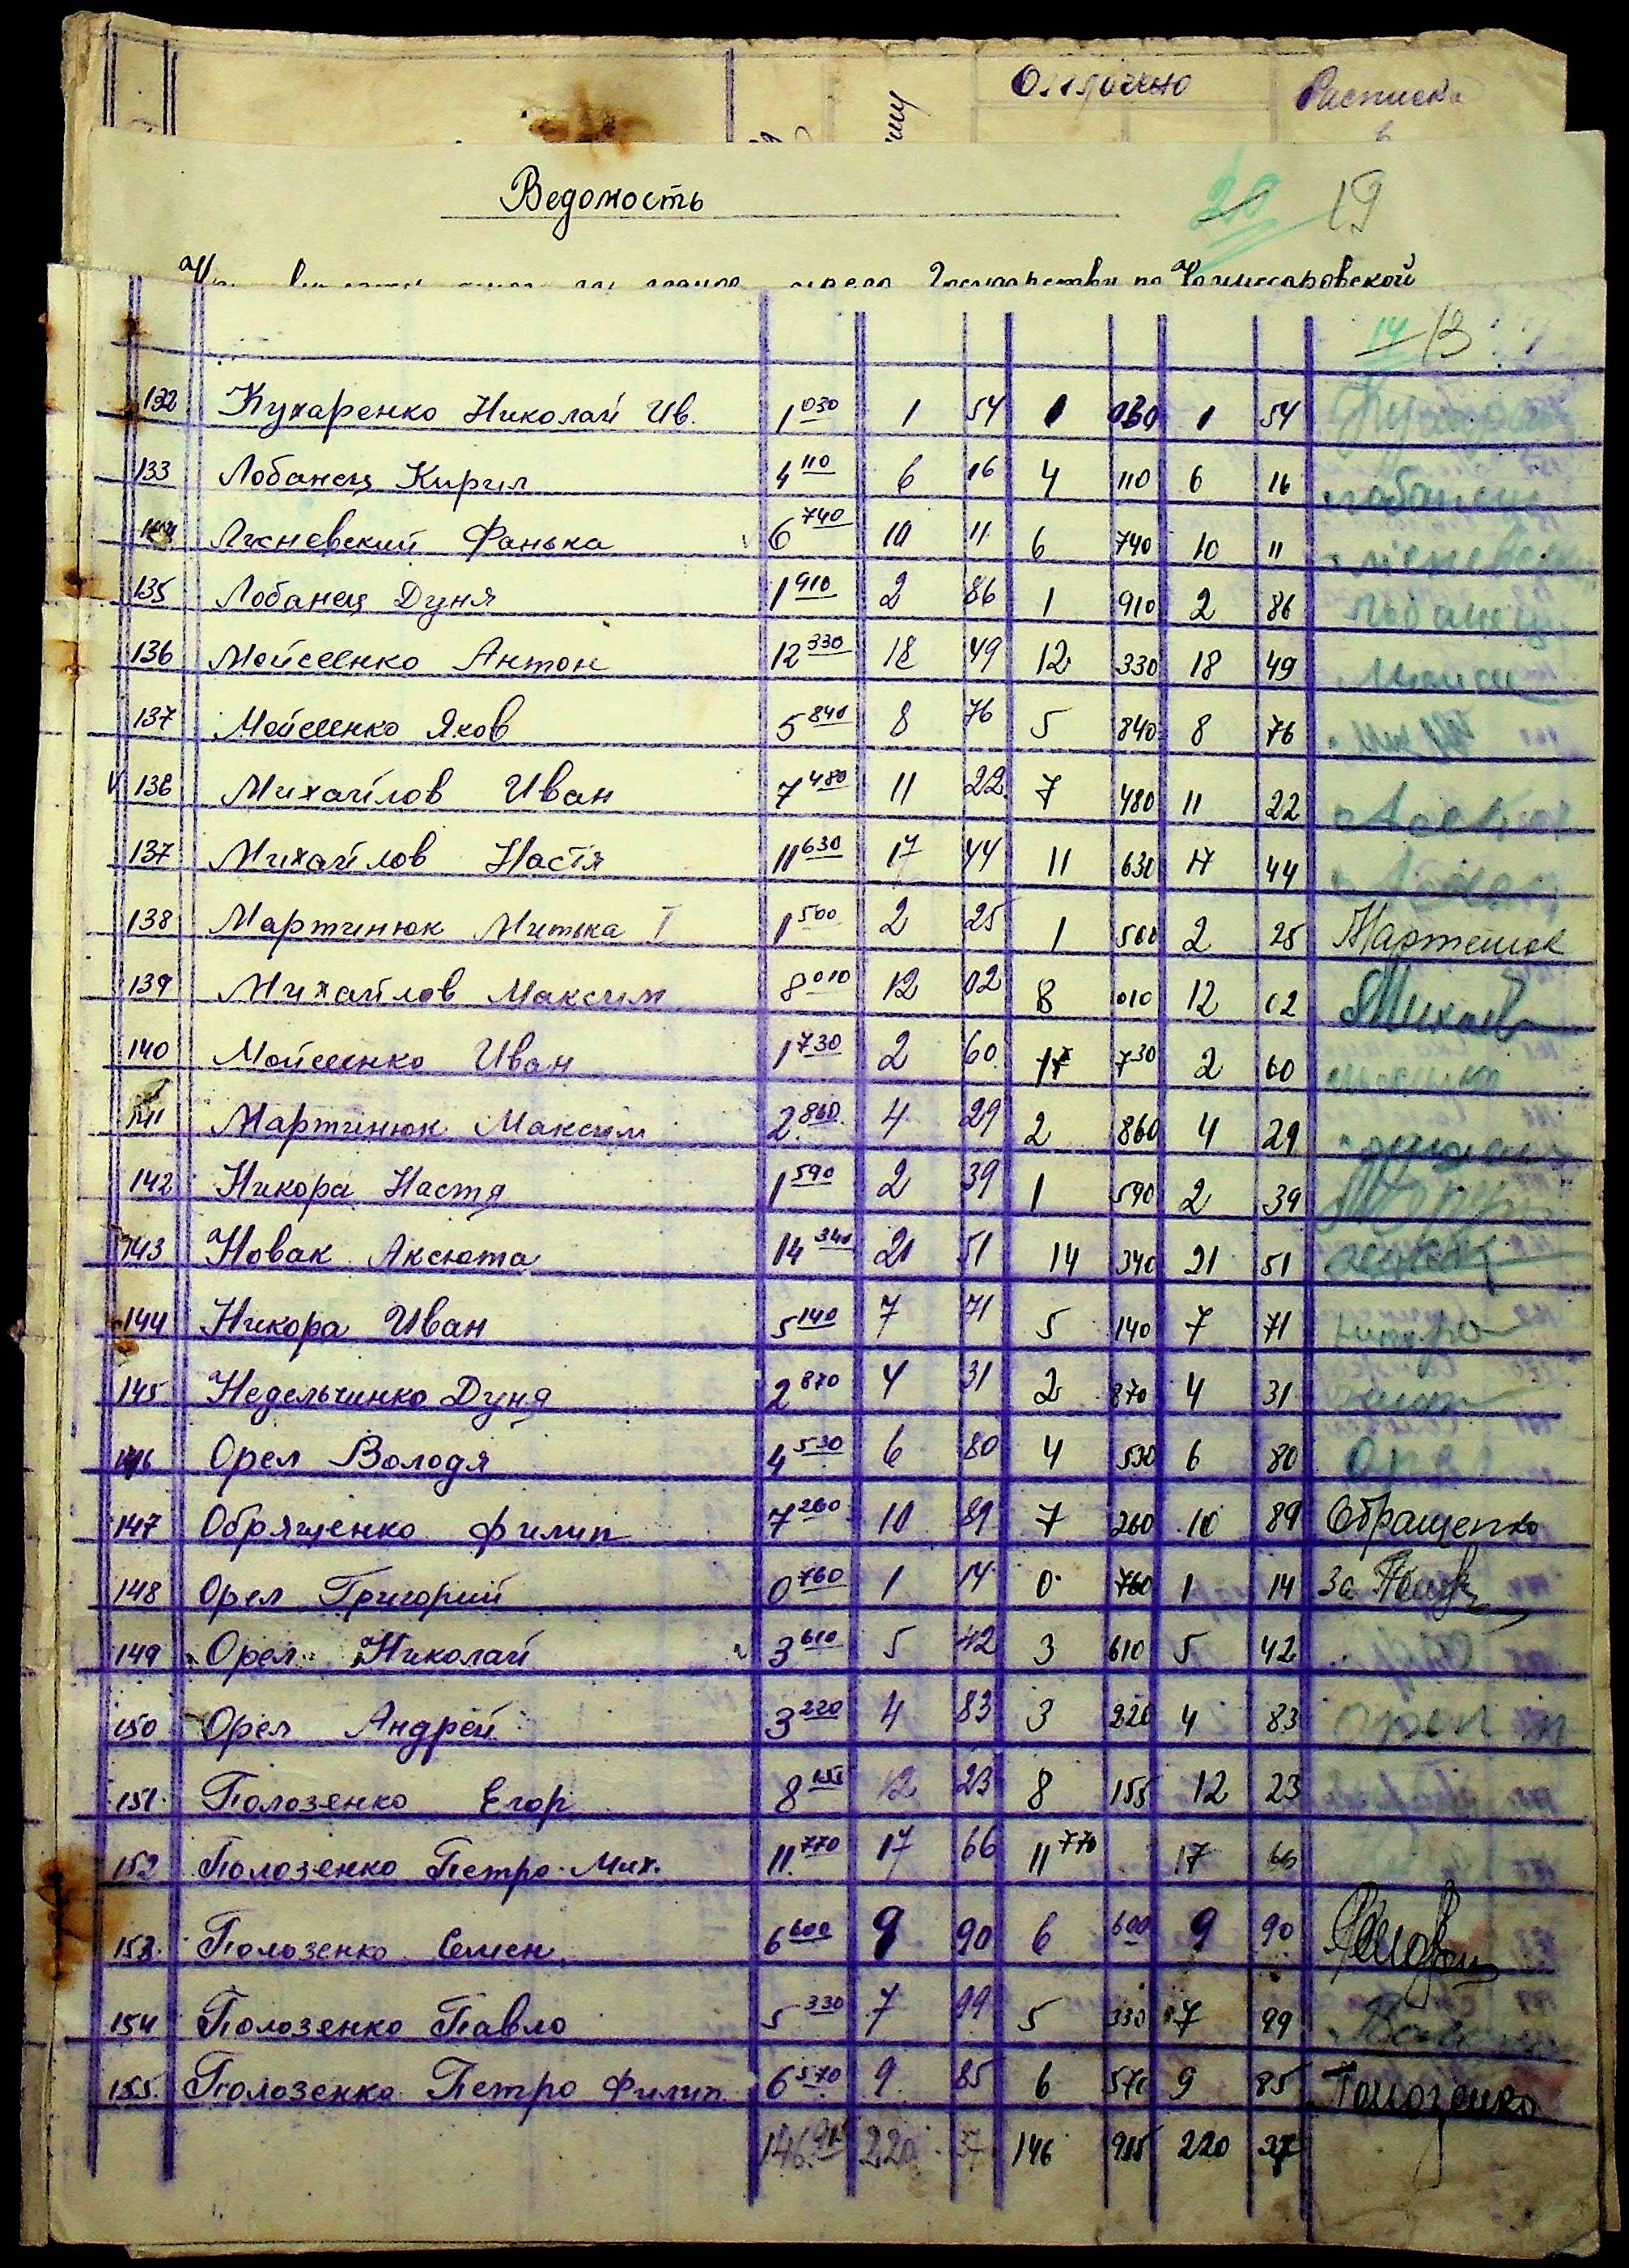 Оплачено Расписка
в
Ведомость 20 19
Государству по Комиссаровской
14 13
132 Кухаренко Николай Ив. 1 030 1 54 1 030 1 54
133 Лобанец Кирил 4 110 6 16 4 110 6 16 Лобанец
Фанька 6 740 10 11 6 740 10 11
135 Лобанец Дуня 1 910 2 86 1 910 2 86 Лобанец
136 Мойсеенко Антон 12 330 18 49 12 330 18 49
137 Мойсеенко Яков 5 840 8 76 5 840 8 76
V 136 Михайлов Иван 7 480 11 22 7 480 11 22
137 Михайлов Настя 11 630 17 44 11 630 17 44
138 Мартинюк Митька I 1 500 2 25 1 500 2 25 Мартенюк
139 Михайлов Максим 8 010 12 02 8 010 12 02
140 Мойсеенко Иван 1 730 2 60 730 2 60
141 Мартинюк Максим 2 860 4 29 2 860 4 29
142 Никора Настя 1 590 2 39 1 590 2 39
143 Новак Аксюта 14 340 21 51 14 340 21 51
144 Никора Иван 5 140 7 71 5 140 7 71 Никора
145 Недельчинко Дуня 2 870 4 31 2 870 4 31
146 Орел Володя 4 530 6 80 4 530 6 80 Орел
147 Обрященко Филип 7 260 10 89 7 260 10 89 Обращенко
148 Орел Григорий 0 760 1 14 0 760 1 14 За
149 Орел Николай 3 610 5 42 3 610 5 42
150 Орел Андрей 3 220 4 83 3 220 4 83 Орел
151 Полозенко Егор 8 155 12 23 8 155 12 23
152 Полозенко Петро Мих. 11 770 17 66 11 770 17 66
153 Полозенко Семен 6 600 9 90 6 600 9 90
154 Полозенко Павло 5 330 7 99 5 330 7 99
155 Полозенко Петро Филип 6 570 9 85 6 570 9 85 Полозенко
146 915 220 37 146 915 220 37